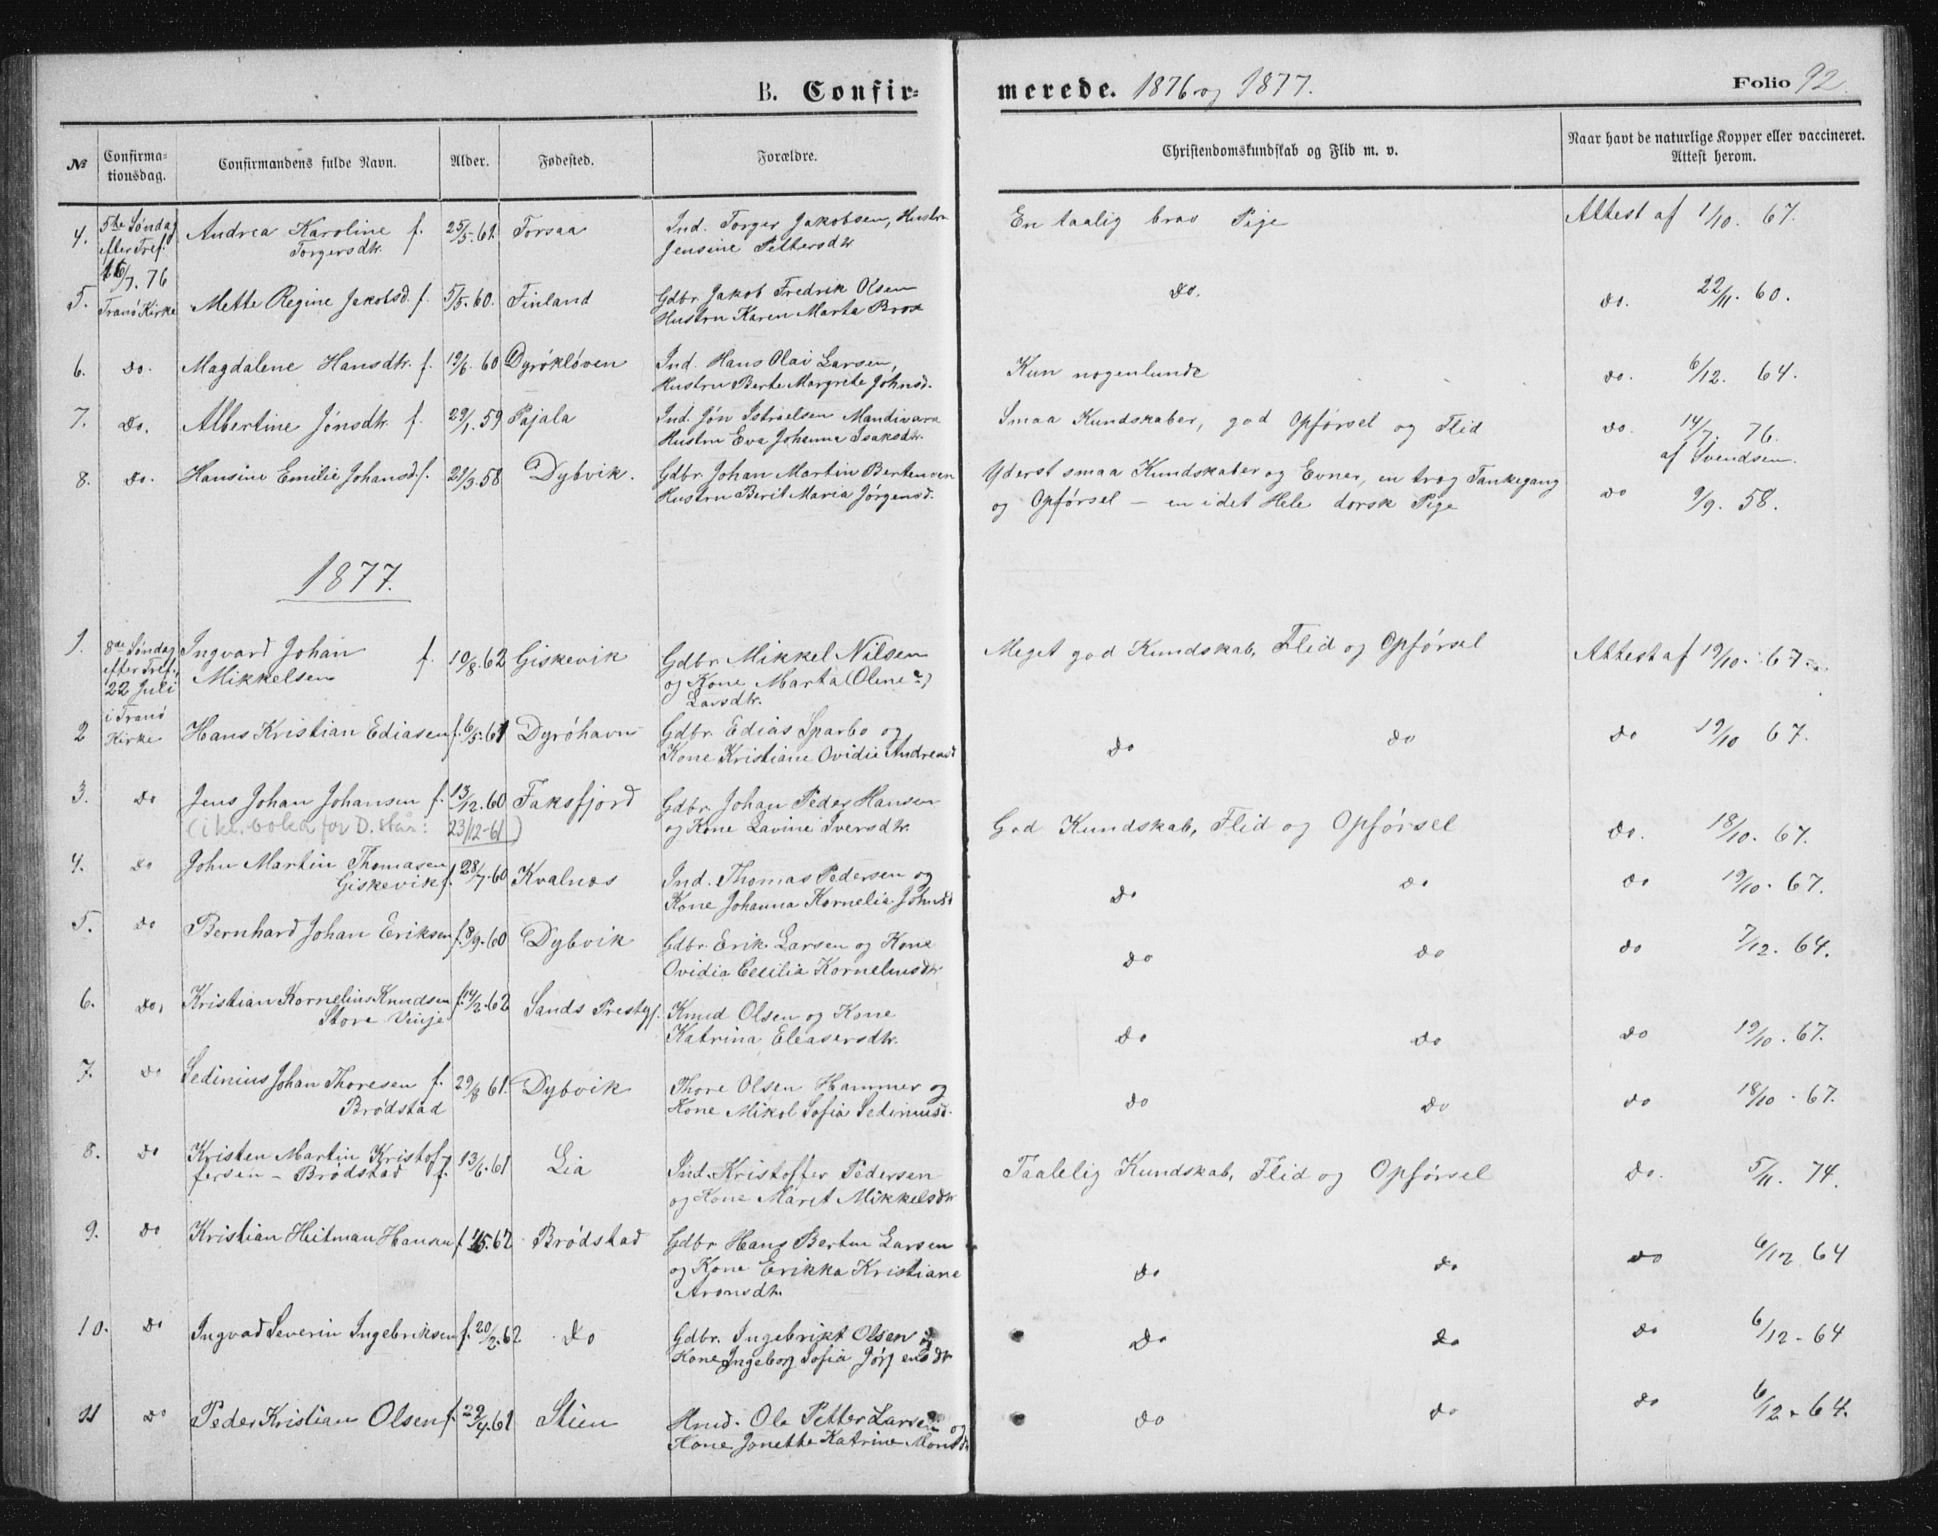 B. Confir-
merede. 1876 og 1877.
Folio 92.
№ Confirma-tionsdag. Confirmandens fulde Navn. Alder. Fødested. Forældre. Christendomskundskab og Flid m. v. Naar havt de naturlige Kopper eller vaccineret. Attest herom.
4. 5te Søndag Andrea Karoline f. 25/5. 61 Torsaa Ind. Torger Jakobsen, Hustru En taalig brav Pige Attest af 1/10. 67.
efter Tref. Torgersdtr. Jensine Pettersdtr
16/7. 76
5. Tranö Kirke Mette Regine Jakobsd. f. 5/5. 60. Finland Gdbr. Jakob Fredrik Olsen do. do. 22/11. 60.
Hustru Karen Marta Brox
6. do. Magdalene Hansdtr. f. 19/6. 60 Dyrökloven Ind. Hans Olai Larsen, Kun nogenlunde do. 6/12. 64.
Hustru Berte Margrete Johnsd.
7. do. Albertine Jönsdtr. f. 29/1. 59 Pajala Ind. Jön Istraelsen Mandivara Smaa Kundskaber, god Opførsel og Flid do. 14/7. 76.
Hustru Eva Johanna Isaksdtr. af Svendsen.
8. do. Hansine Emilie Johansd. f. 22/3. 58 Dybvik. Gdbr. Johan Martin Bertensen Yderst smaa Kundskaber og Evner, en træg Tankegang do 9/9. 58.
Hustru Berit Maria Jörgensd. og Opførsel – en i det Hele dorsk Pige
1877.
1. 8de Søndag Ingvard Johan f. 10/8. 62 Giskevik Gdbr. Mikkel Nilsen Meget god Kundskab, Flid og Opførsel Attest af 19/10. 67.
efter Tref. Mikkelsen og Kone Marta Olene
22 Juli Larsdtr.
2 i Tranö Hans Kristian Ediasen f. 6/5. 61 Dyröhavn Gdbr. Edias Sparbo og do do do 19/10 67.
Kirke Kone Kristiane Ovidie Andreasd
3. do Jens Johan Johansen f. 13/12. 60 Faksfjord Gdbr. Johan Peder Hansen God Kundskab, Flid og Opførsel do. 18/10. 67.
(i kl. boka for D. står: 23/12-61) og Kone Lavine Iversdtr.
4. do John Martin Thomasen 28/7. 60 Kvalnæs Ind. Thomas Pedersen og do do do 19/10. 67.
Giskevik f. Kone Johanna Kornelia Johnsd
5. do Bernhard Johan Eriksen f. 8/9. 60 Dybvik Gdbr. Erik Larsen og Kone do do do 7/12. 64.
Ovidia Cecilia Kornelinsdtr
6. do. Kristian Kornelius Knudsen f. 14/2. 62 Sands Prestegj. Knud Olsen og Kone do do do 19/10. 67.
Store Vinje Katrina Eleasersdtr.
7. do Sedinius Johan Thoresen f. 29/8 61. Dybvik Thore Olsen Hammer og do do do 18/10. 67.
Brödstad Kone Mikol Sofia Sediniusd.
8. do Kristen Martin Kristof- 13/6. 61 Lia Ind. Kristoffer Pedersen Taalelig Kundskab, Flid og Opførsel do. 5/11. 74.
fersen – Brödstad f. og Kone Maret Mikkelsdtr
9. do Kristian Heitman Hansen f. 1/5. 62 Brödstad Gdbr Hans Bertin Larsen do do do 6/12 64
og Kone Erikka Kristiane
Aronsdtr.
10. do Ingvad Severin Ingebriksen f. 20/2. 62 do Gdbr. Ingebrikt Olsen og do do do 6/12 - 64
Kone Ingeborg Sofia Jörgensdtr
11 do Peder Kristian Olsen f. 29/4. 61 Stien Hmd. Ole Petter Larsen og do do do 6/12. 64.
Kone Jonetta Katrine Monsd.